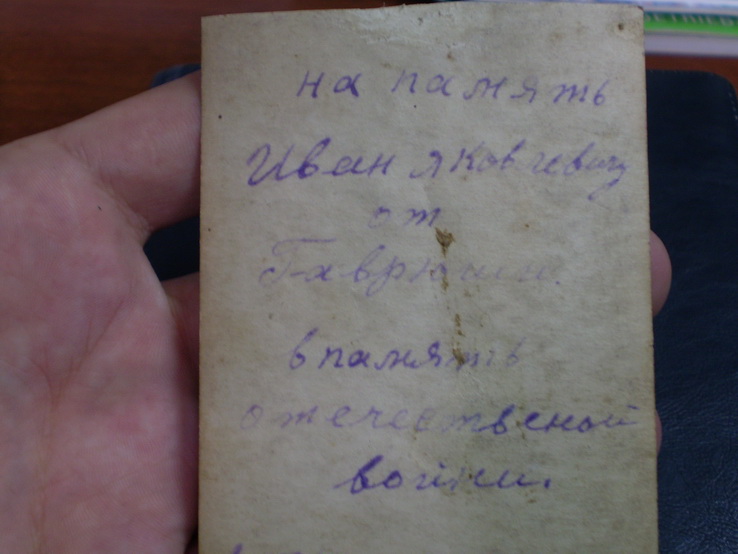 на память
Иван Яковлевичу
от
Гаврюши.
в память
отечественой
войни.